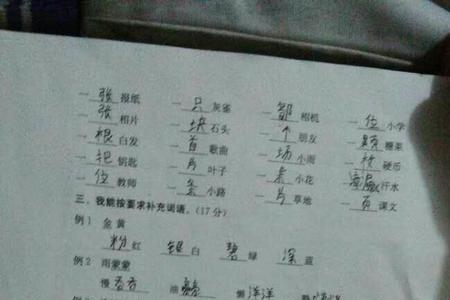 一张报纸 一只灰雀 一部相机 一位小学
一张相片 一块石头 一个朋友 一颗糖果
一根白发 一首歌曲 一场小雨 一枚硬币
一把钥匙 一片叶子 一朵小花 一滴汗水
一位教师 一条小路 一片草地 一页课文
三、我能按要求补充词语。(17分)
例1 金黄
粉红 银白 碧绿 深蓝
例2 雨蒙蒙
慢吞吞 油亮亮 懒洋洋